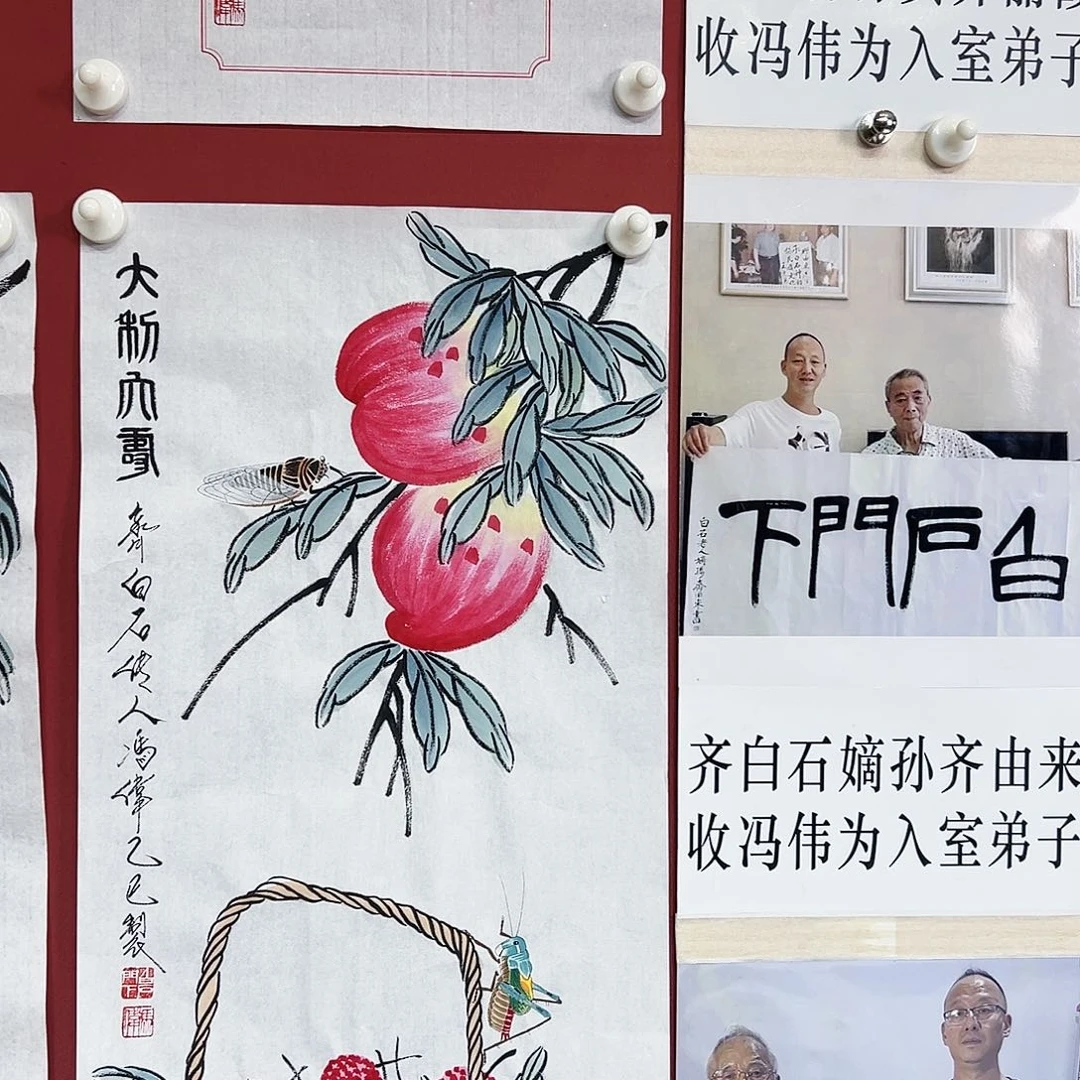 收冯伟为入室弟子
大利大壽
齊白石傳人馮偉乙巳製
白石門下
齐白石嫡孙齐由来
收冯伟为入室弟子